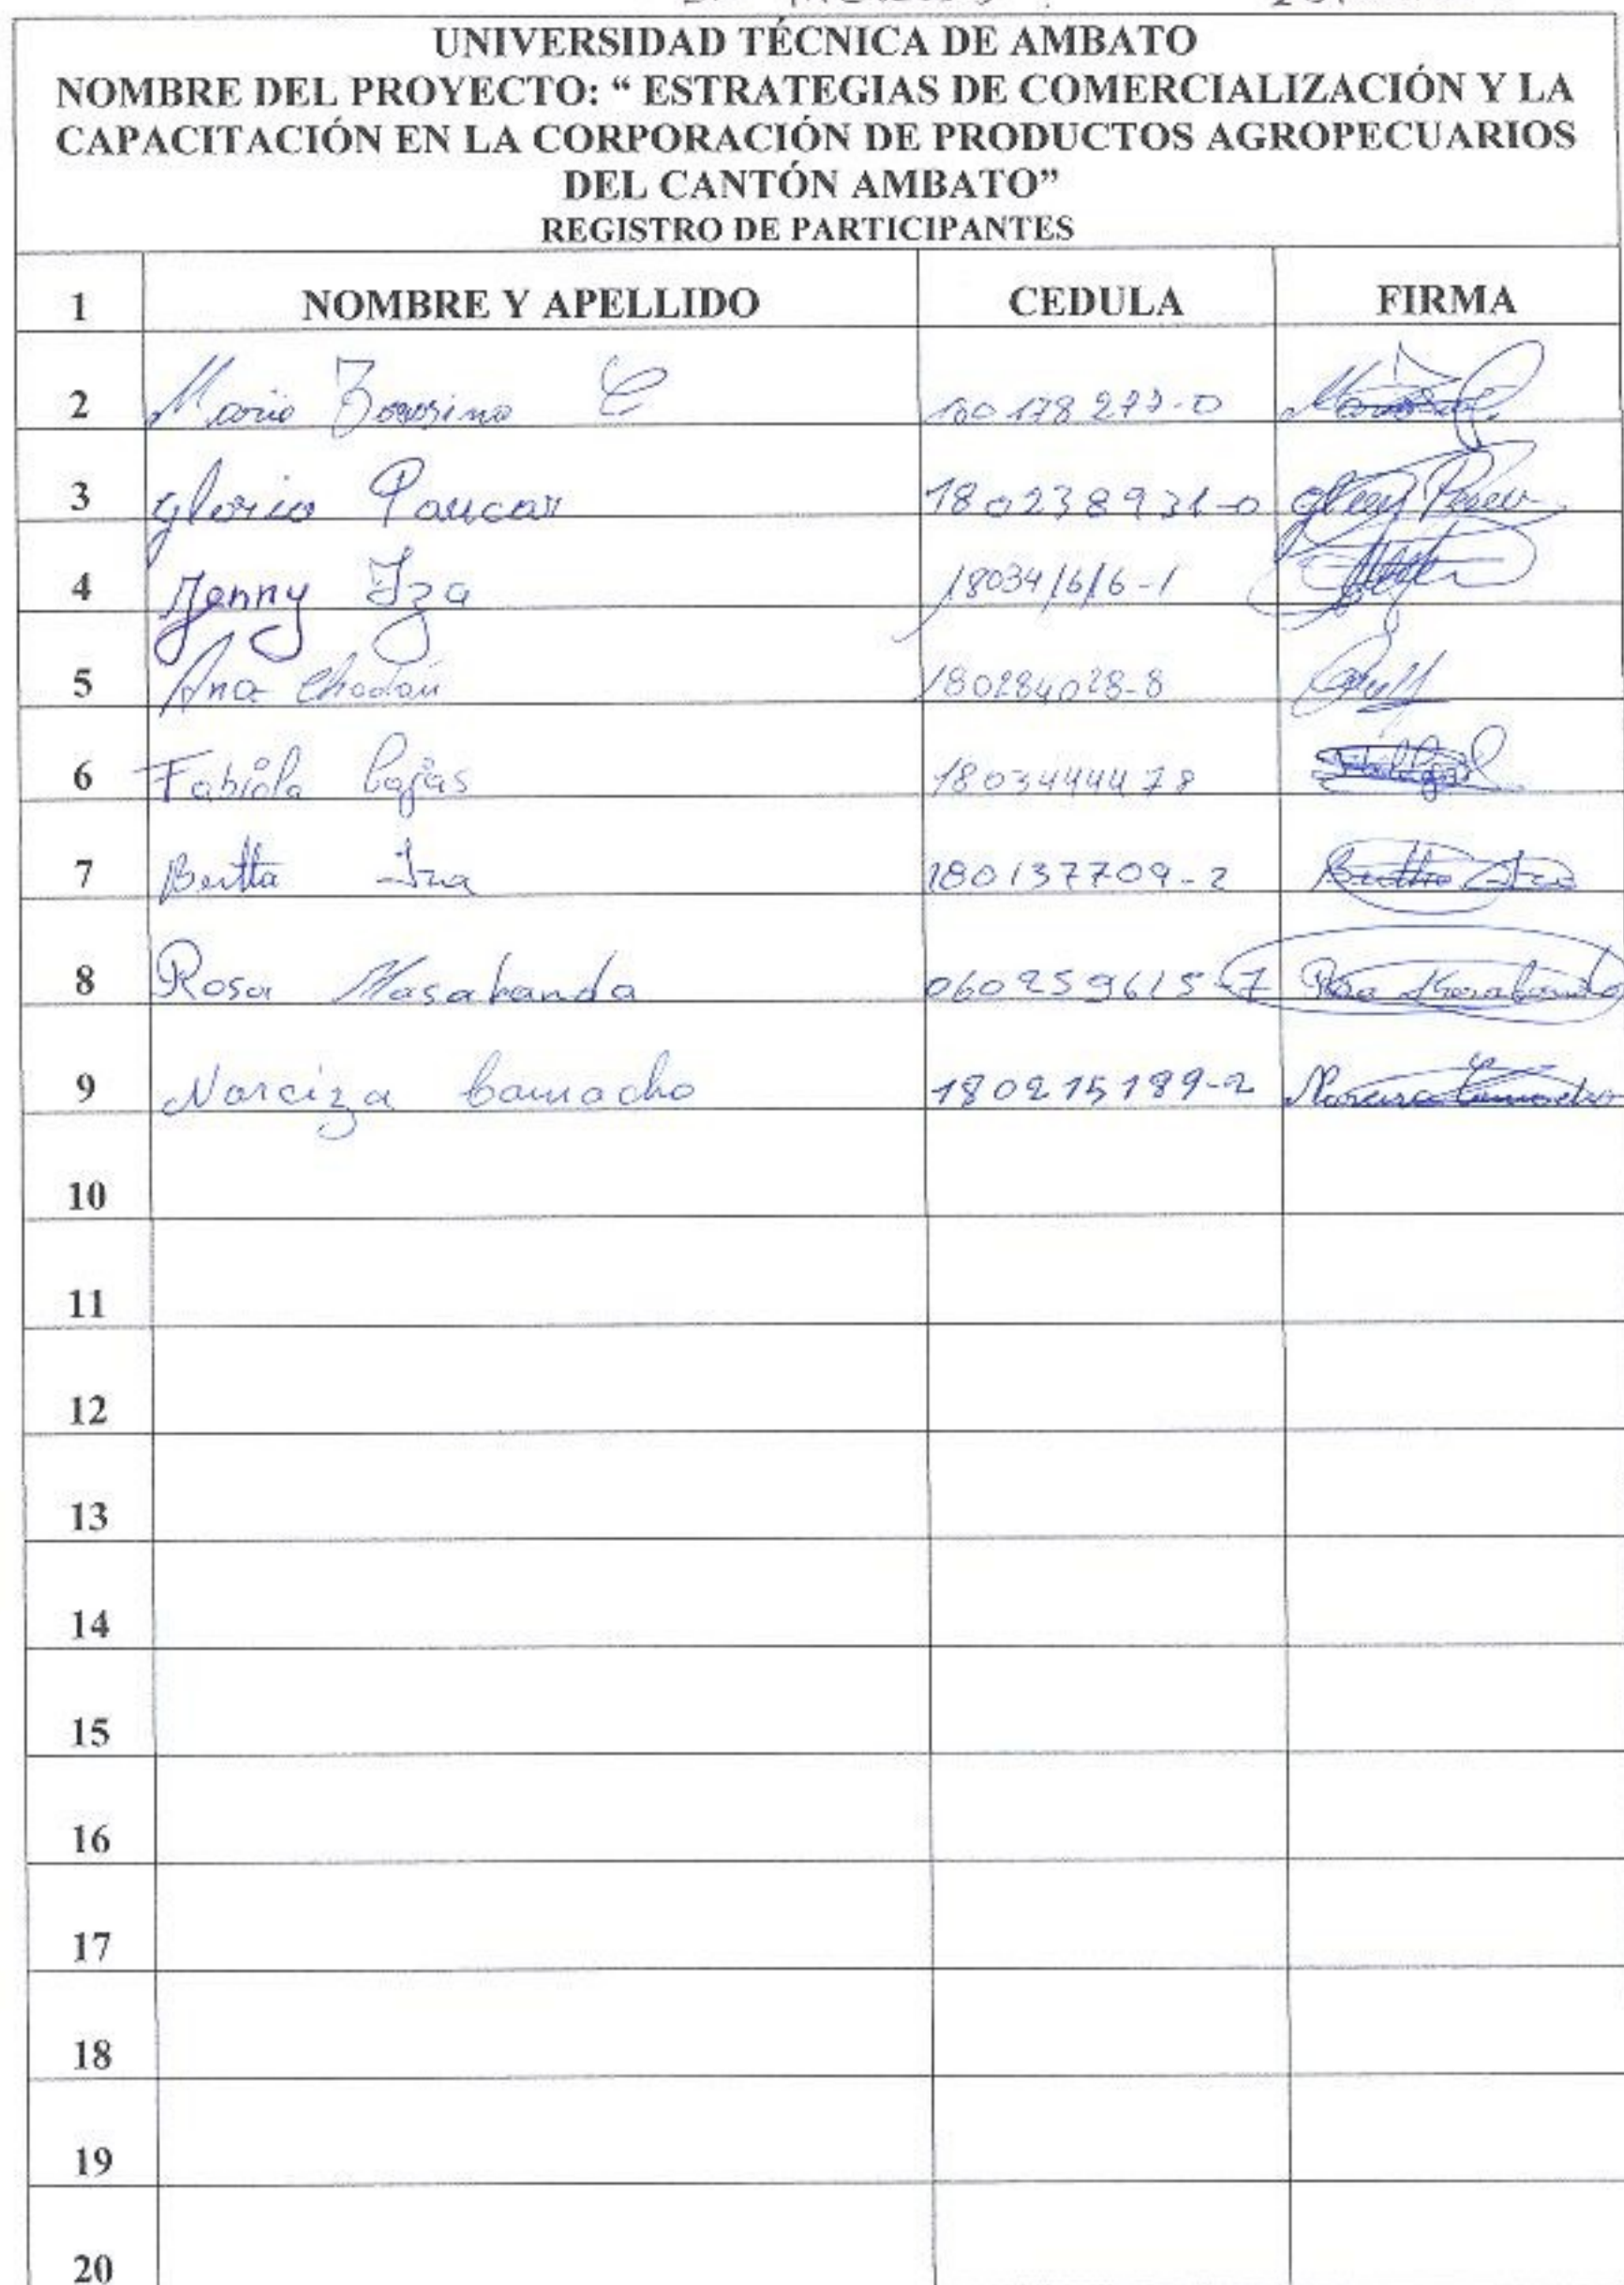 UNIVERSIDAD TÉCNICA DE AMBATO
NOMBRE DEL PROYECTO: “ ESTRATEGIAS DE COMERCIALIZACIÓN Y LA
CAPACITACIÓN EN LA CORPORACIÓN DE PRODUCTOS AGROPECUARIOS
DEL CANTÓN AMBATO”
REGISTRO DE PARTICIPANTES
1 NOMBRE Y APELLIDO CEDULA FIRMA
2 C
3 Gloria Paucar 180238931-0
4 Jenny Iza 180341616-1
5 Ana 180284028-8
6 Fabiola Cajas 1803444478
7 Bertha Iza 180137709-2 Bertha Iza
8 Rosa Masabanda 060259615-7 Rosa Masabanda
9 Narciza Camacho 180215189-2 Narciza Camacho
10
11
12
13
14
15
16
17
18
19
20